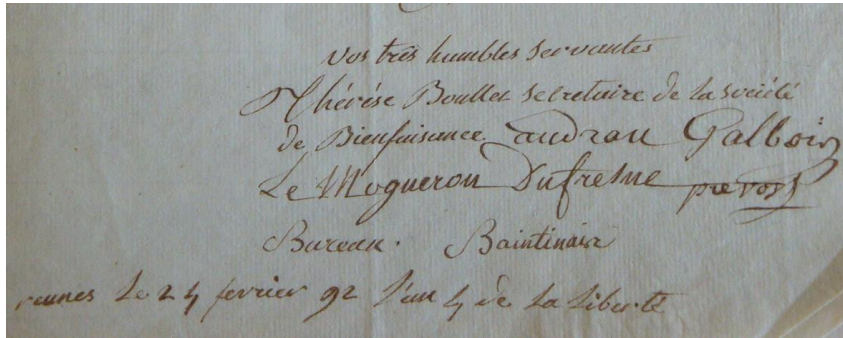 vos très humbles servantes
Thérése Boullet secretaire de la société
de Bienfaisance. audran Galbois
Le Mogueron Dufresne prevost
Bureau. Baintinair
rennes Le 24 fevrier 92 l'an 4 de la Liberté